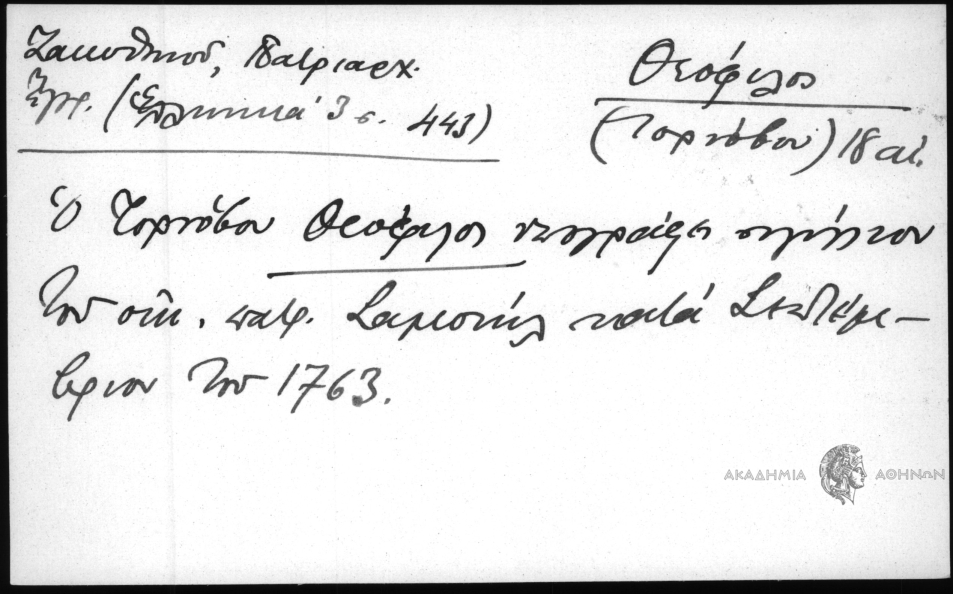 Ζακυθηνοῦ, Πατριαρχ.
ἔγγρ. (Ἑλληνικά 3 σ. 443)
Θεόφιλος
(Τορνόβου) 18 αἰ.
Ὁ Τορνόβου Θεόφιλος ὑπογράφει σιγίλλιον
τοῦ οἰκ. πατρ. Σαμουήλ κατά Σεπτέμ-
βριον τοῦ 1763.
ΑΚΑΔΗΜΙΑ ΑΘΗΝΩΝ